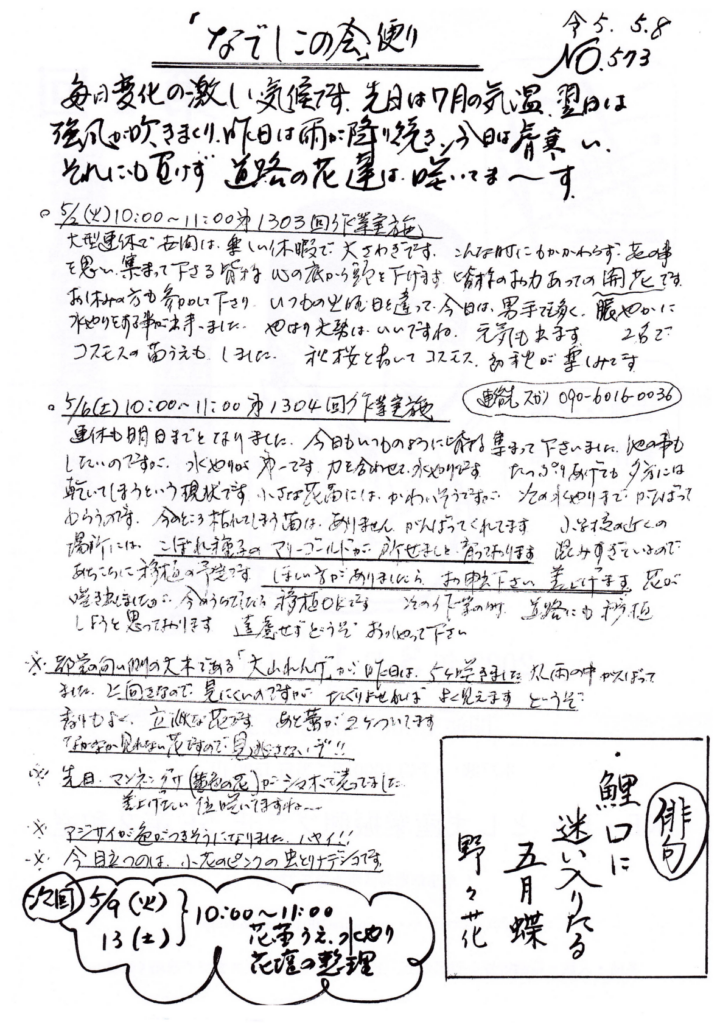 「なでしこの会」便り
令5.5.8
NO.573
毎日変化の激しい気候です。先日は7月の気温、翌日は
強風が吹きまくり、昨日は雨が降り続き、今日は肌寒い。
それにも負けず 道路の花達は、咲いてま〜す。
○ 5/2(火)10:00〜11:00 第1303回作業実施
大型連休で世間は、楽しい休暇で大さわぎです。こんな時にもかかわらず、花の事
を思い、集まって下さる皆様 心の底から頭を下げます。皆様のお力あっての開花です。
お休みの方も参加して下さり いつもの火曜日と違って、今日は、男手も多く、賑やかに
水やりをする事が出来ました。 やはり大勢は、いいですね。元気も出ます 2名で
コスモスの苗うえも、しました。 秋桜と書いてコスモス、 秋が楽しみです
○ 5/6(土)10:00〜11:00 第1304回作業実施
連絡先 スガノ 090-6016-0036
連休も明日までとなりました。今日もいつものように皆様集まって下さいました。他の事も
したいのですが、水やりが第一です 力を合わせて水やりです たっぷりあげても夕方には
乾いてしまうという現状です 小さな花苗には、かわいそうですが、次の水やりまでがんばって
もらうのです。今のところ枯れてしまう苗は、ありません がんばってくれてます 小学校の近くの
場所には、こぼれ種子のマリーゴールドが 所せましと育っております 混みすぎているので
あちこちに移植の予定です ほしい方がありましたら、お申出下さい 差し上げます 花が
咲き出しましたが、今のうちでしたら移植OKです 次の作業の時、道路にも移植
しようと思っております 遠慮せずどうぞ おっしゃって下さい
※ 向い側の大木である「大山れんげ」が昨日は、5ケ咲きました 風雨の中がんばって
ました。上向きなので見にくいのですが たぐりよせれば よく見えます どうぞ
香りもよく、立派な花です あと蕾が2ケついてます
なかなか見れない花ですので見逃さないデ!!
※ 先日、マンネングサ(黄色の花)がシマホで売ってました
差上げたい位咲いてますね〜
※ アジサイが色がつきそうになりました。ハヤイ!!
※ 今目立つのは、小花のピンクの虫とりナデシコです。
次回 5/9(火)
13(土)
10:00〜11:00
花苗うえ、水やり
花壇の整理
俳句
・鯉口に
迷い入りたる
五月蝶
野々花